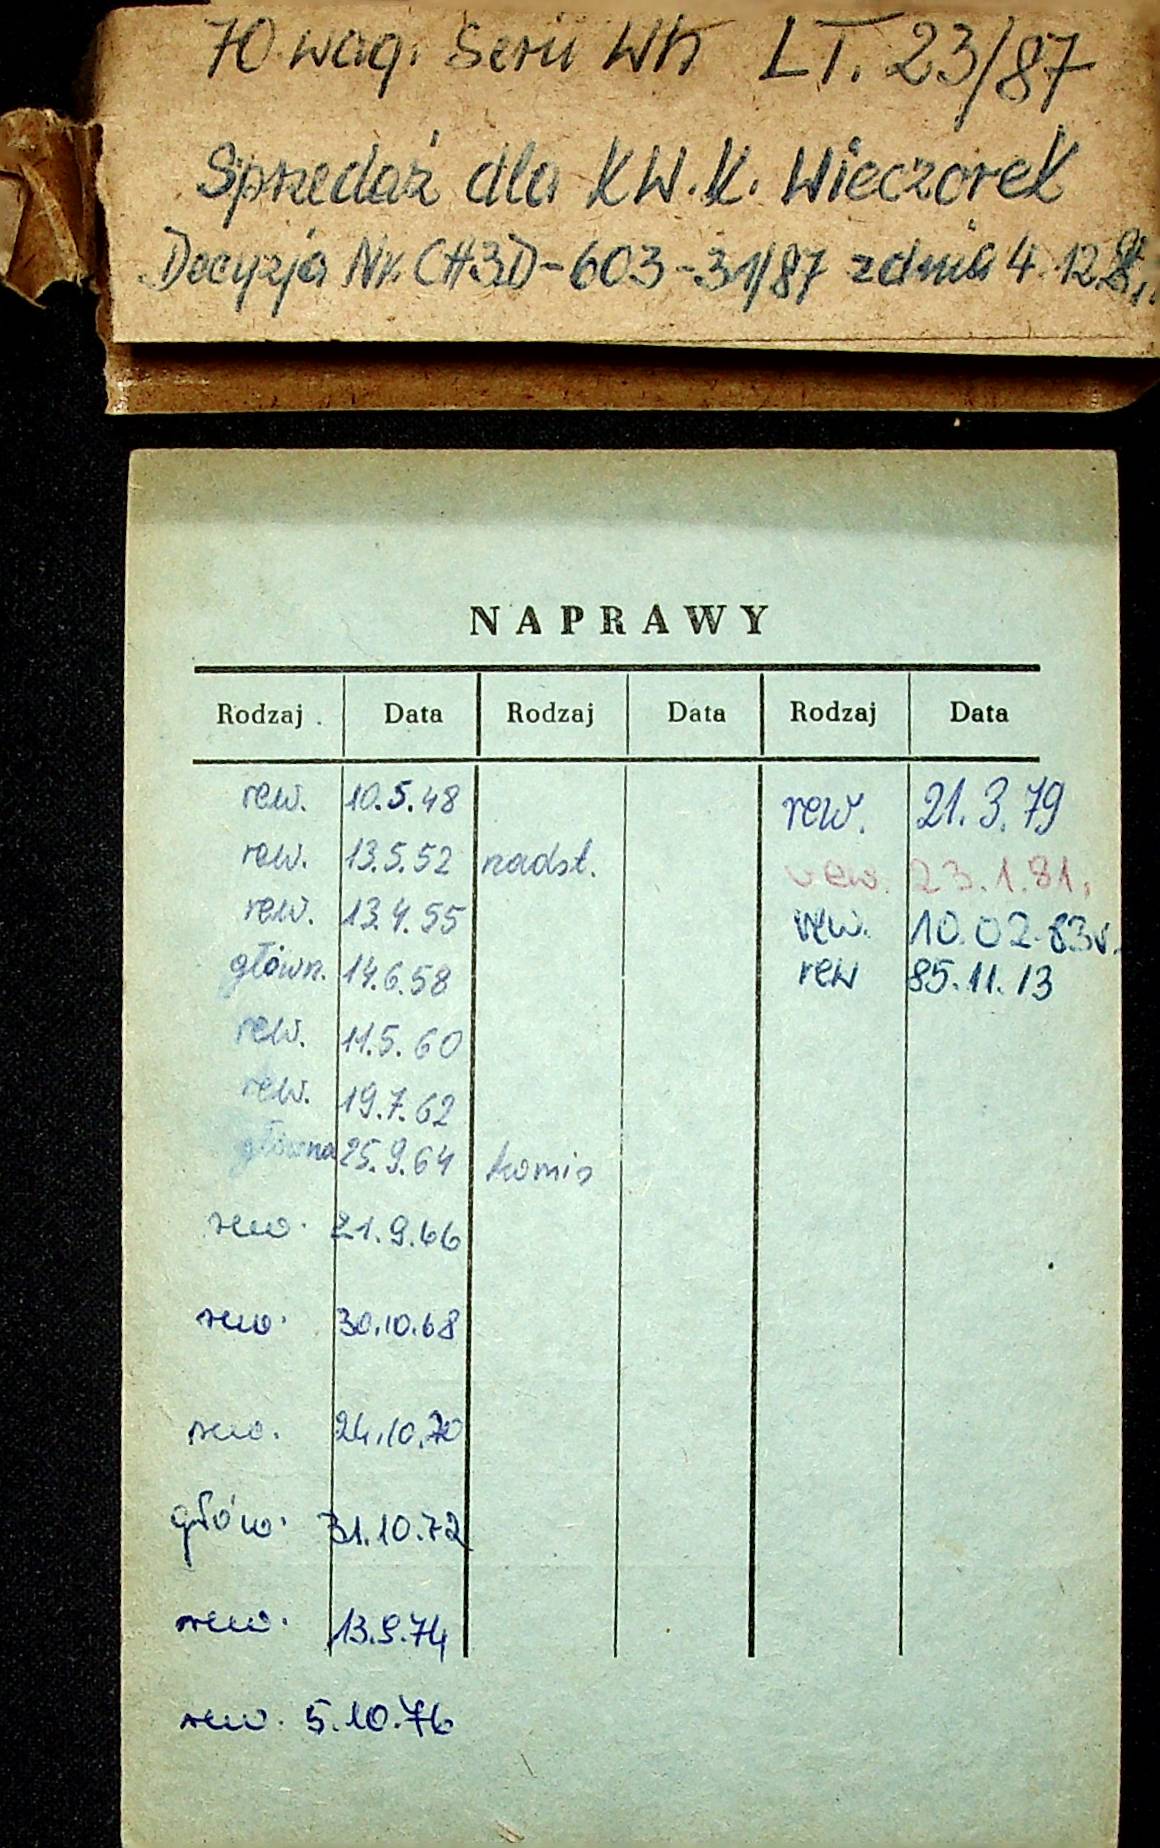 70 wag. Serii Wh LT. 23/87
Sprzedaż dla KW.K. Wieczorek
Decyzja Nr. CH3D-603-31/87 z dnia 4.12.
NAPRAWY
Rodzaj Data Rodzaj Data Rodzaj Data
rew. 10.5.48 rew. 21.3.79
rew. 13.5.52 nadst. rew. 23.1.81.
rew. 13.4.55 rew. 10.02.83r.
główn. 14.6.58 rew 85.11.13
rew. 11.5.60
rew. 19.7.62
główna 25.9.64 komis
rew. 21.9.66
rew. 30.10.68
rew. 24.10.70
głów. 31.10.72
rew. 13.9.74
rew. 5.10.76